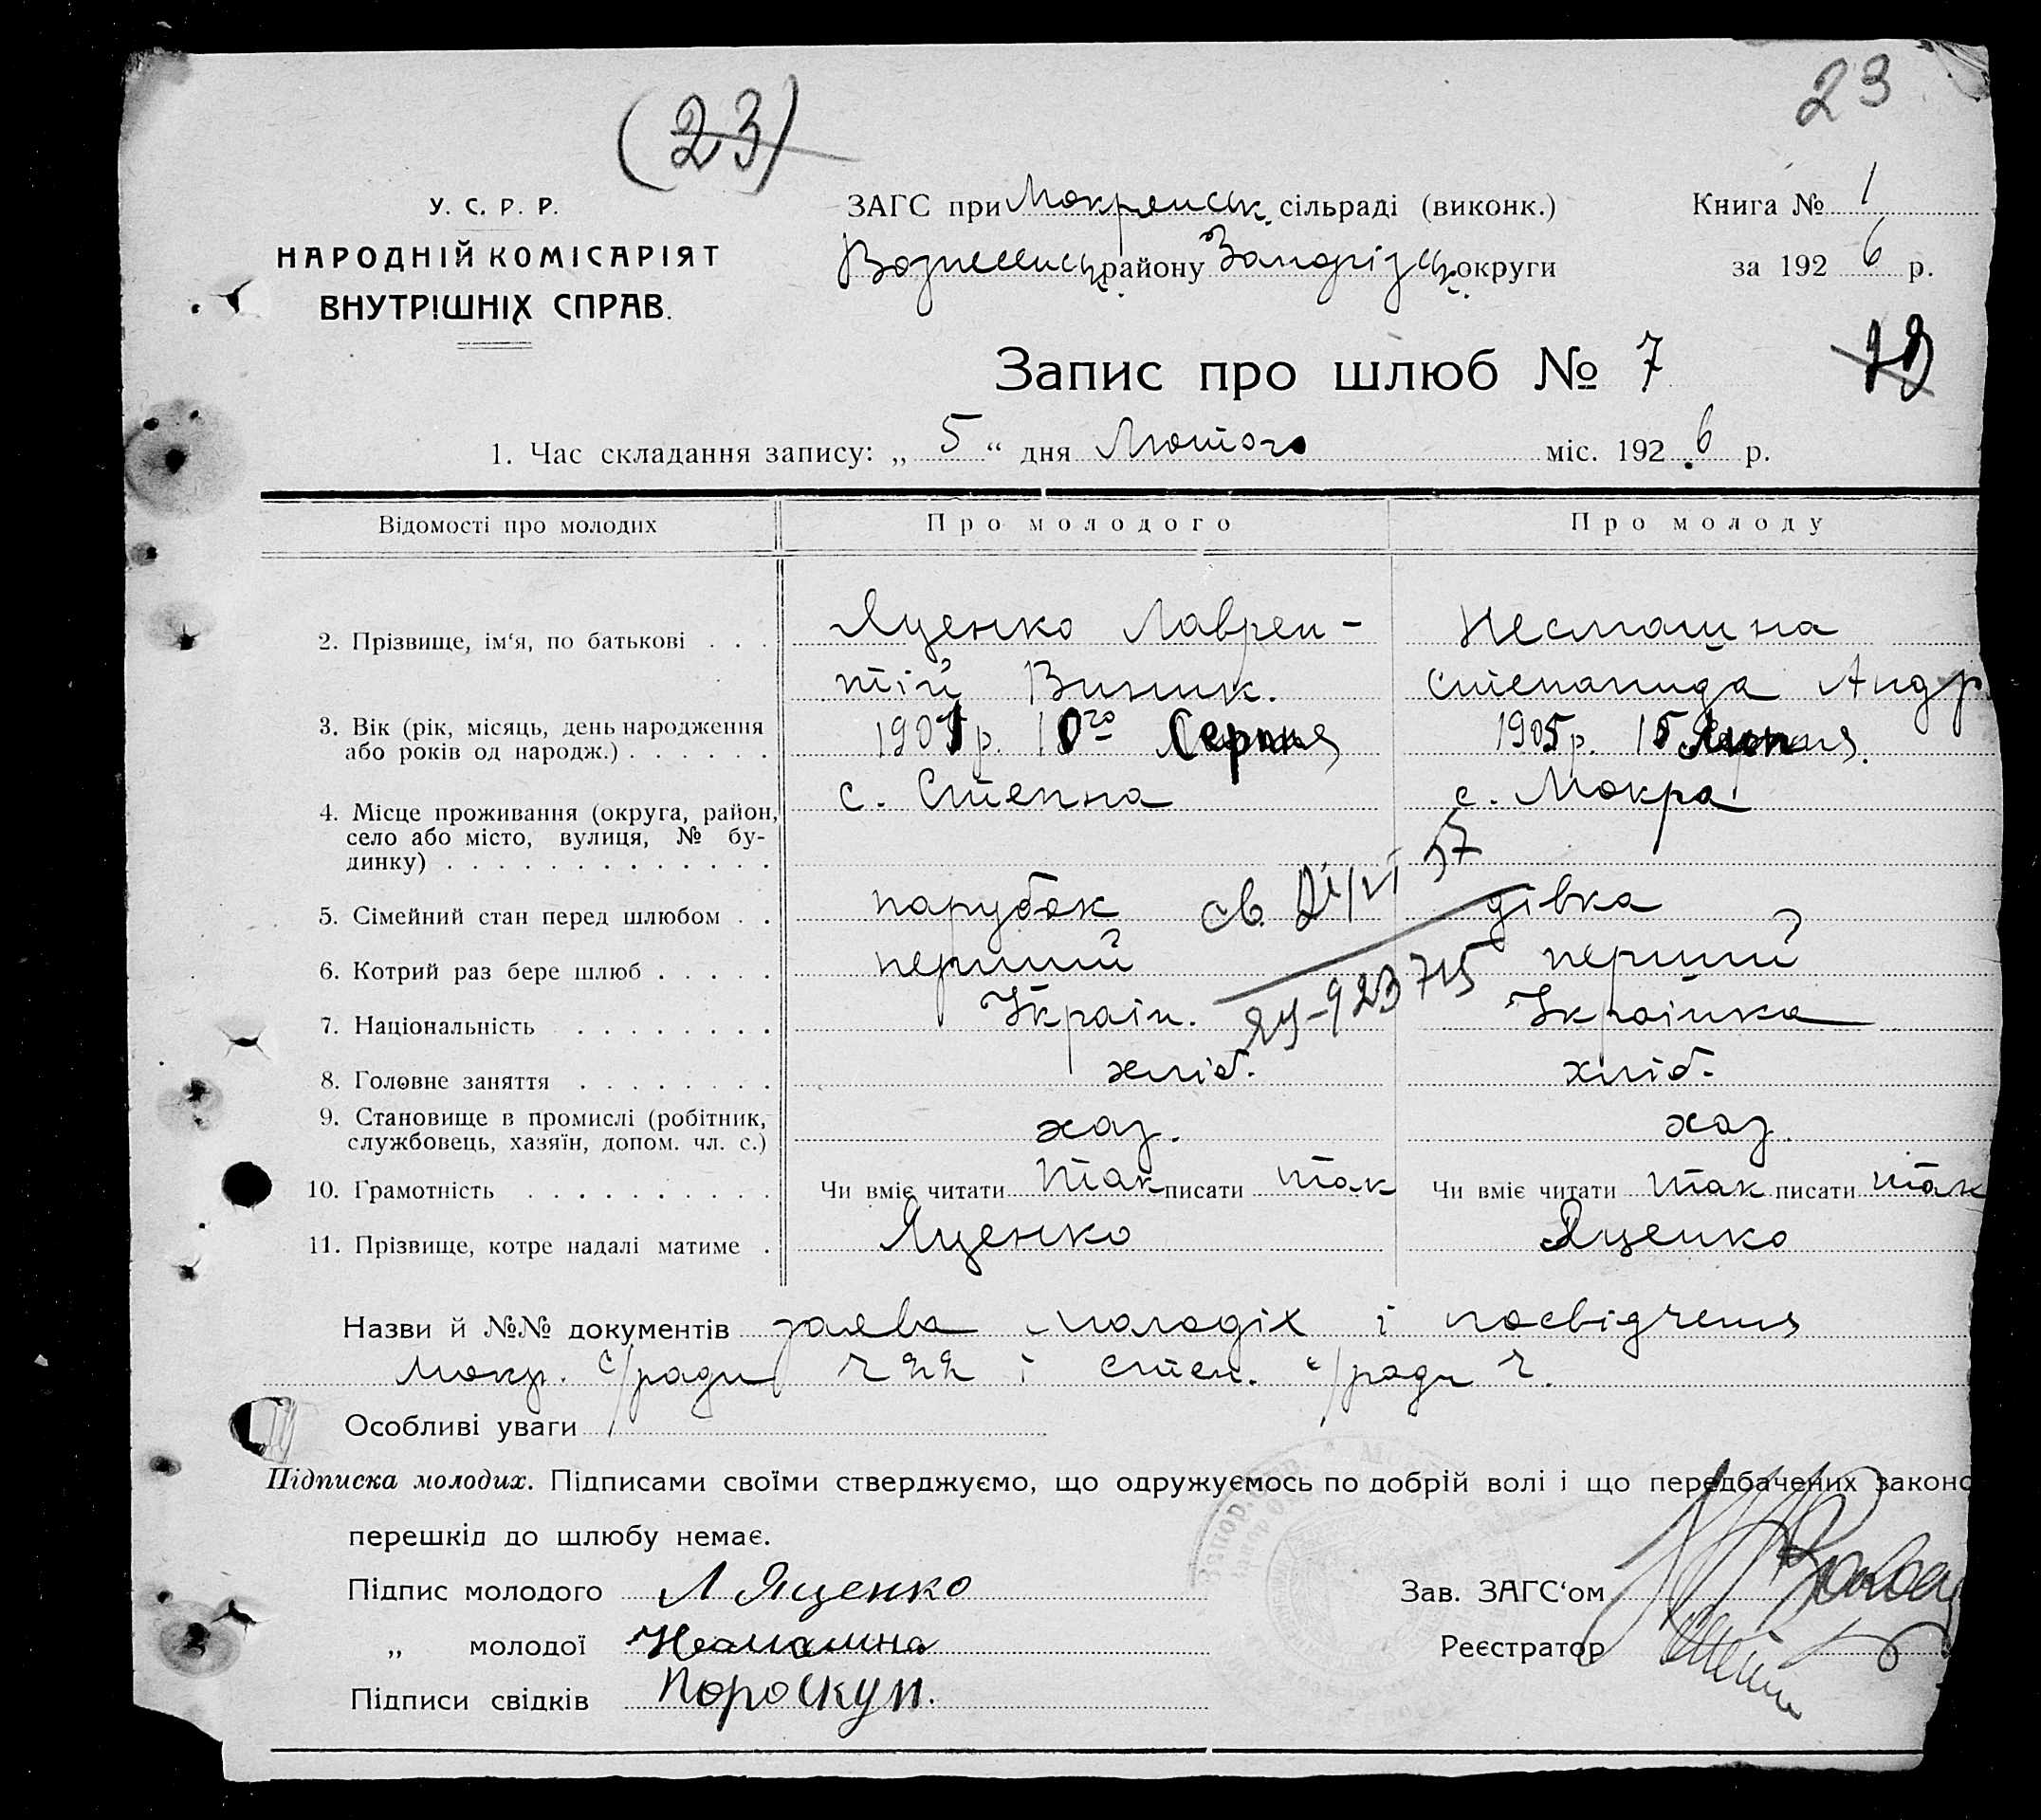 23
(23)
У. С. Р. Р.
НАРОДНІЙ КОМІСАРІЯТ
ВНУТРІШНІХ СПРАВ.
ЗАГС при Мокрянськ. сільраді (виконк.)
Вознесенськ. району Запорізьк. округи
Книга № 1
за 192 6 р.
Запис про шлюб № 7
1. Час складання запису: „ 5 “ дня Лютого міс. 192 6 р.
Відомості про молодих Про молодого Про молоду
2. Прізвище, ім‘я, по батькові . . . Яценко Лаврен- Несмашна
тій Степанида Андр
3. Вік (рік, місяць, день народження
або років од народж.) . . . . . . р. 10го Серпня 1905 р. 15
4. Місце проживання (округа, район,
село або місто, вулиця, № бу-
динку) . . . . . . . . . . . . . с. Степна с. Мокра
5. Сімейний стан перед шлюбом . . парубок дівка
6. Котрий раз бере шлюб . . . . . перший перший
7. Національність . . . . . . . . Україн. Українка
8. Головне заняття . . . . . . . . хліб. хліб.
9. Становище в промислі (робітник,
службовець, хазяїн, допом. чл. с.) хаз. хаз.
10. Грамотність . . . . . . . . . . Чи вміє читати так писати так Чи вміє читати так писати так
11. Прізвище, котре надалі матиме . Яценко Яценко
Назви й №№ документів заява молодіх і посвідченя
Мокр. с/ради ч 22 і степ. с/ради ч.
Особливі уваги
Підписка молодих. Підписами своїми стверджуємо, що одружуємось по добрій волі і що передбачених законо
перешкід до шлюбу немає.
Підпис молодого Л Яценко
„ молодої Несмашна
Підписи свідків Пороскун.
Зав. ЗАГС‘ом
Реєстратор